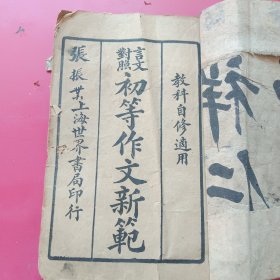 教科自修適用
言文對照
初等作文新範
上海世界書局印行
張振
祥仁